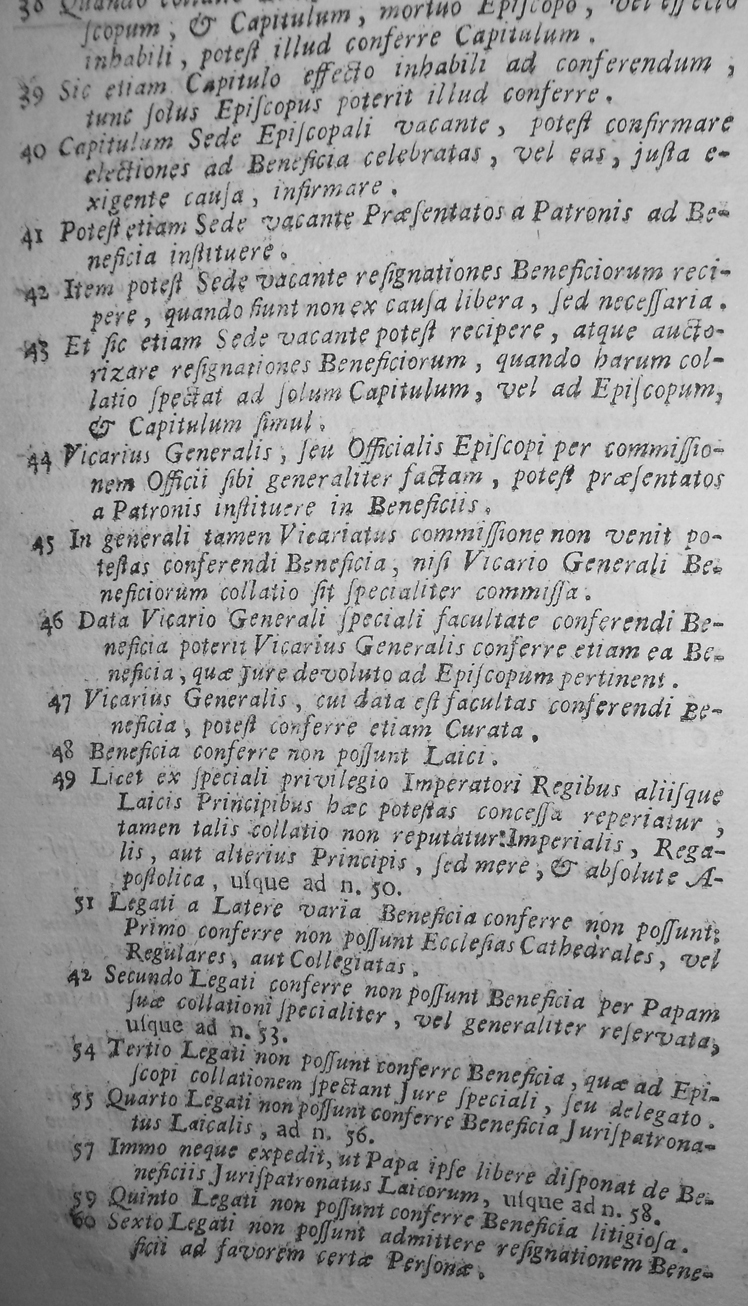 38 Quando
ſcopum, & Capitulum, mortuo Epiſcopo, vel effecto
inhabili, poteſt illud conferre Capitulum.
39 Sic etiam Capitulo effecto inhabili ad conferendum,
tunc ſolus Epiſcopus poterit illud conferre.
40 Capitulum Sede Epiſcopali vacante, poteſt confirmare
electiones ad Beneficia celebratas, vel eas, juſta e-
xigente cauſa, infirmare.
41 Poteſt etiam Sede vacante Præſentatos a Patronis ad Be-
neficia inſtituere.
42 Item poteſt Sede vacante reſignationes Beneficiorum reci-
pere, quando fiunt non ex cauſa libera, ſed neceſſaria.
43 Et ſic etiam Sede vacante poteſt recipere, atque aucto-
rizare reſignationes Beneficiorum, quando harum col-
latio ſpectat ad ſolum Capitulum, vel ad Epiſcopum,
& Capitulum ſimul.
44 Vicarius Generalis, ſeu Officialis Epiſcopi per commiſſio-
nem Officii ſibi generaliter factam, poteſt præſentatos
a Patronis inſtituere in Beneficiis.
45 In generali tamen Vicariatus commiſſione non venit po-
teſtas conferendi Beneficia, niſi Vicario Generali Be-
neficiorum collatio ſit ſpecialiter commiſſa.
46 Data Vicario Generali ſpeciali facultate conferendi Be-
neficia poterit Vicarius Generalis conferre etiam ea Be-
neficia, quæ Jure devoluto ad Epiſcopum pertinent.
47 Vicarius Generalis, cui data eſt facultas conferendi Be-
neficia, poteſt conferre etiam Curata.
48 Beneficia conferre non poſſunt Laici.
49 Licet ex ſpeciali privilegio Imperatori Regibus aliiſque
Laicis Principibus hæc poteſtas conceſſa reperiatur,
tamen talis collatio non reputatur Imperialis, Rega-
lis, aut alterius Principis, ſed mere, & abſolute A-
poſtolica, uſque ad n. 50.
51 Legati a Latere varia Beneficia conferre non poſſunt:
Primo conferre non poſſunt Eccleſias Cathedrales, vel
Regulares, aut Collegiatas.
42 Secundo Legati conferre non poſſunt Beneficia per Papam
ſuæ collationi ſpecialiter, vel generaliter reſervata,
uſque ad n. 53.
54 Tertio Legati non poſſunt conferre Beneficia, quæ ad Epi-
ſcopi collationem ſpectant Jure ſpeciali, ſeu delegato.
55 Quarto Legati non poſſunt conferre Beneficia Juriſpatrona-
tus Laicalis, ad n. 56.
57 Immo neque expedit, ut Papa ipſe libere diſponat de Be-
neficiis Juriſpatronatus Laicorum, uſque ad n. 58.
59 Quinto Legati non poſſunt conferre Beneficia litigioſa.
60 Sexto Legati non poſſunt admittere reſignationem Bene-
ficii ad favorem certæ Perſonæ.